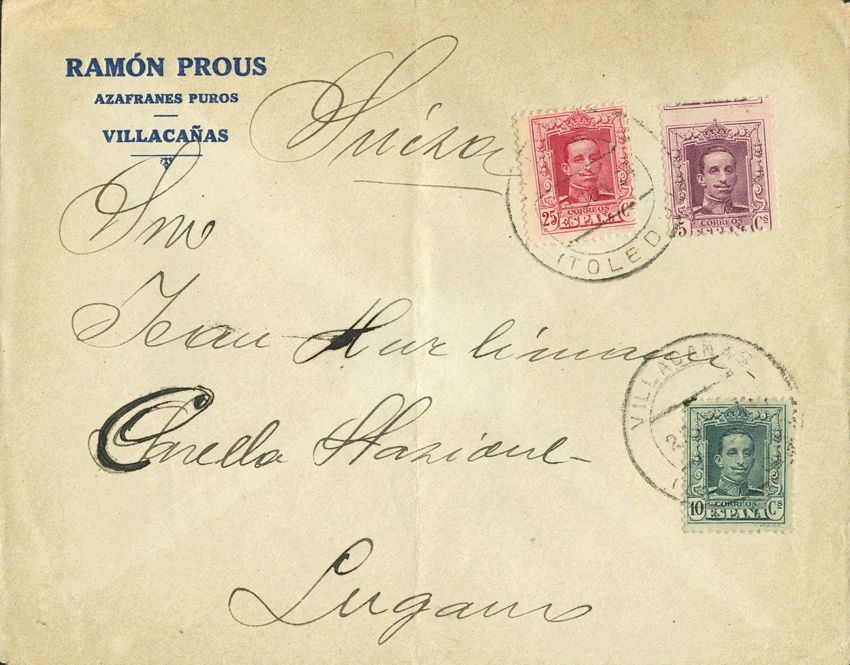 RAMÓN PROUS
AZAFRANES PUROS
VILLACAÑAS
Suiza
Jean Hurlimann
Lugano
25 Cs
CORREOS
ESPAÑA
5 Cs
CORREOS
ESPAÑA
(TOLED
VILLACAÑAS
10 Cs
CORREOS
ESPAÑA